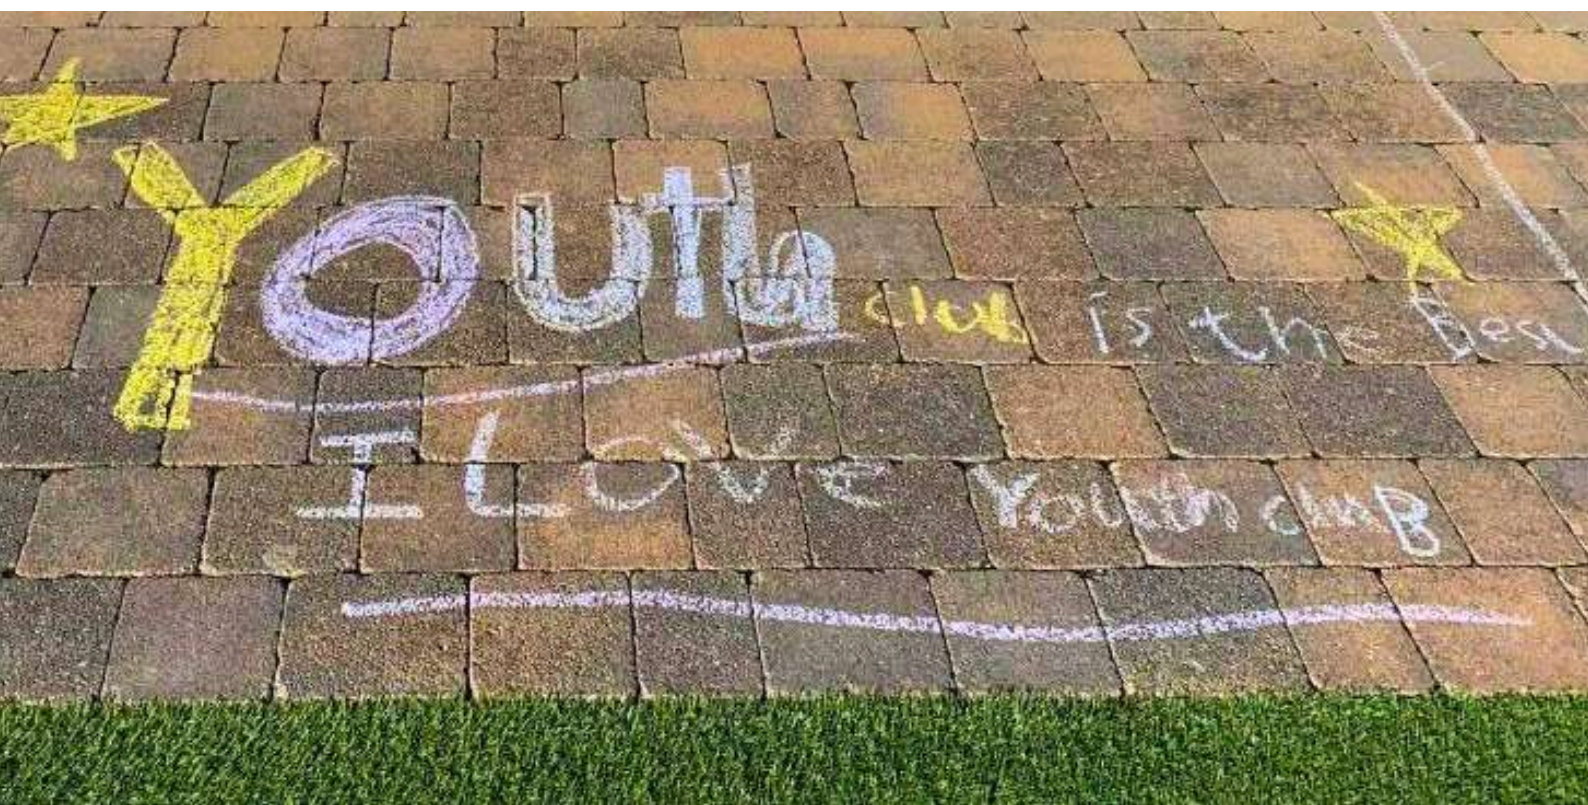 Youth club is the Best
I Love Youth cluB